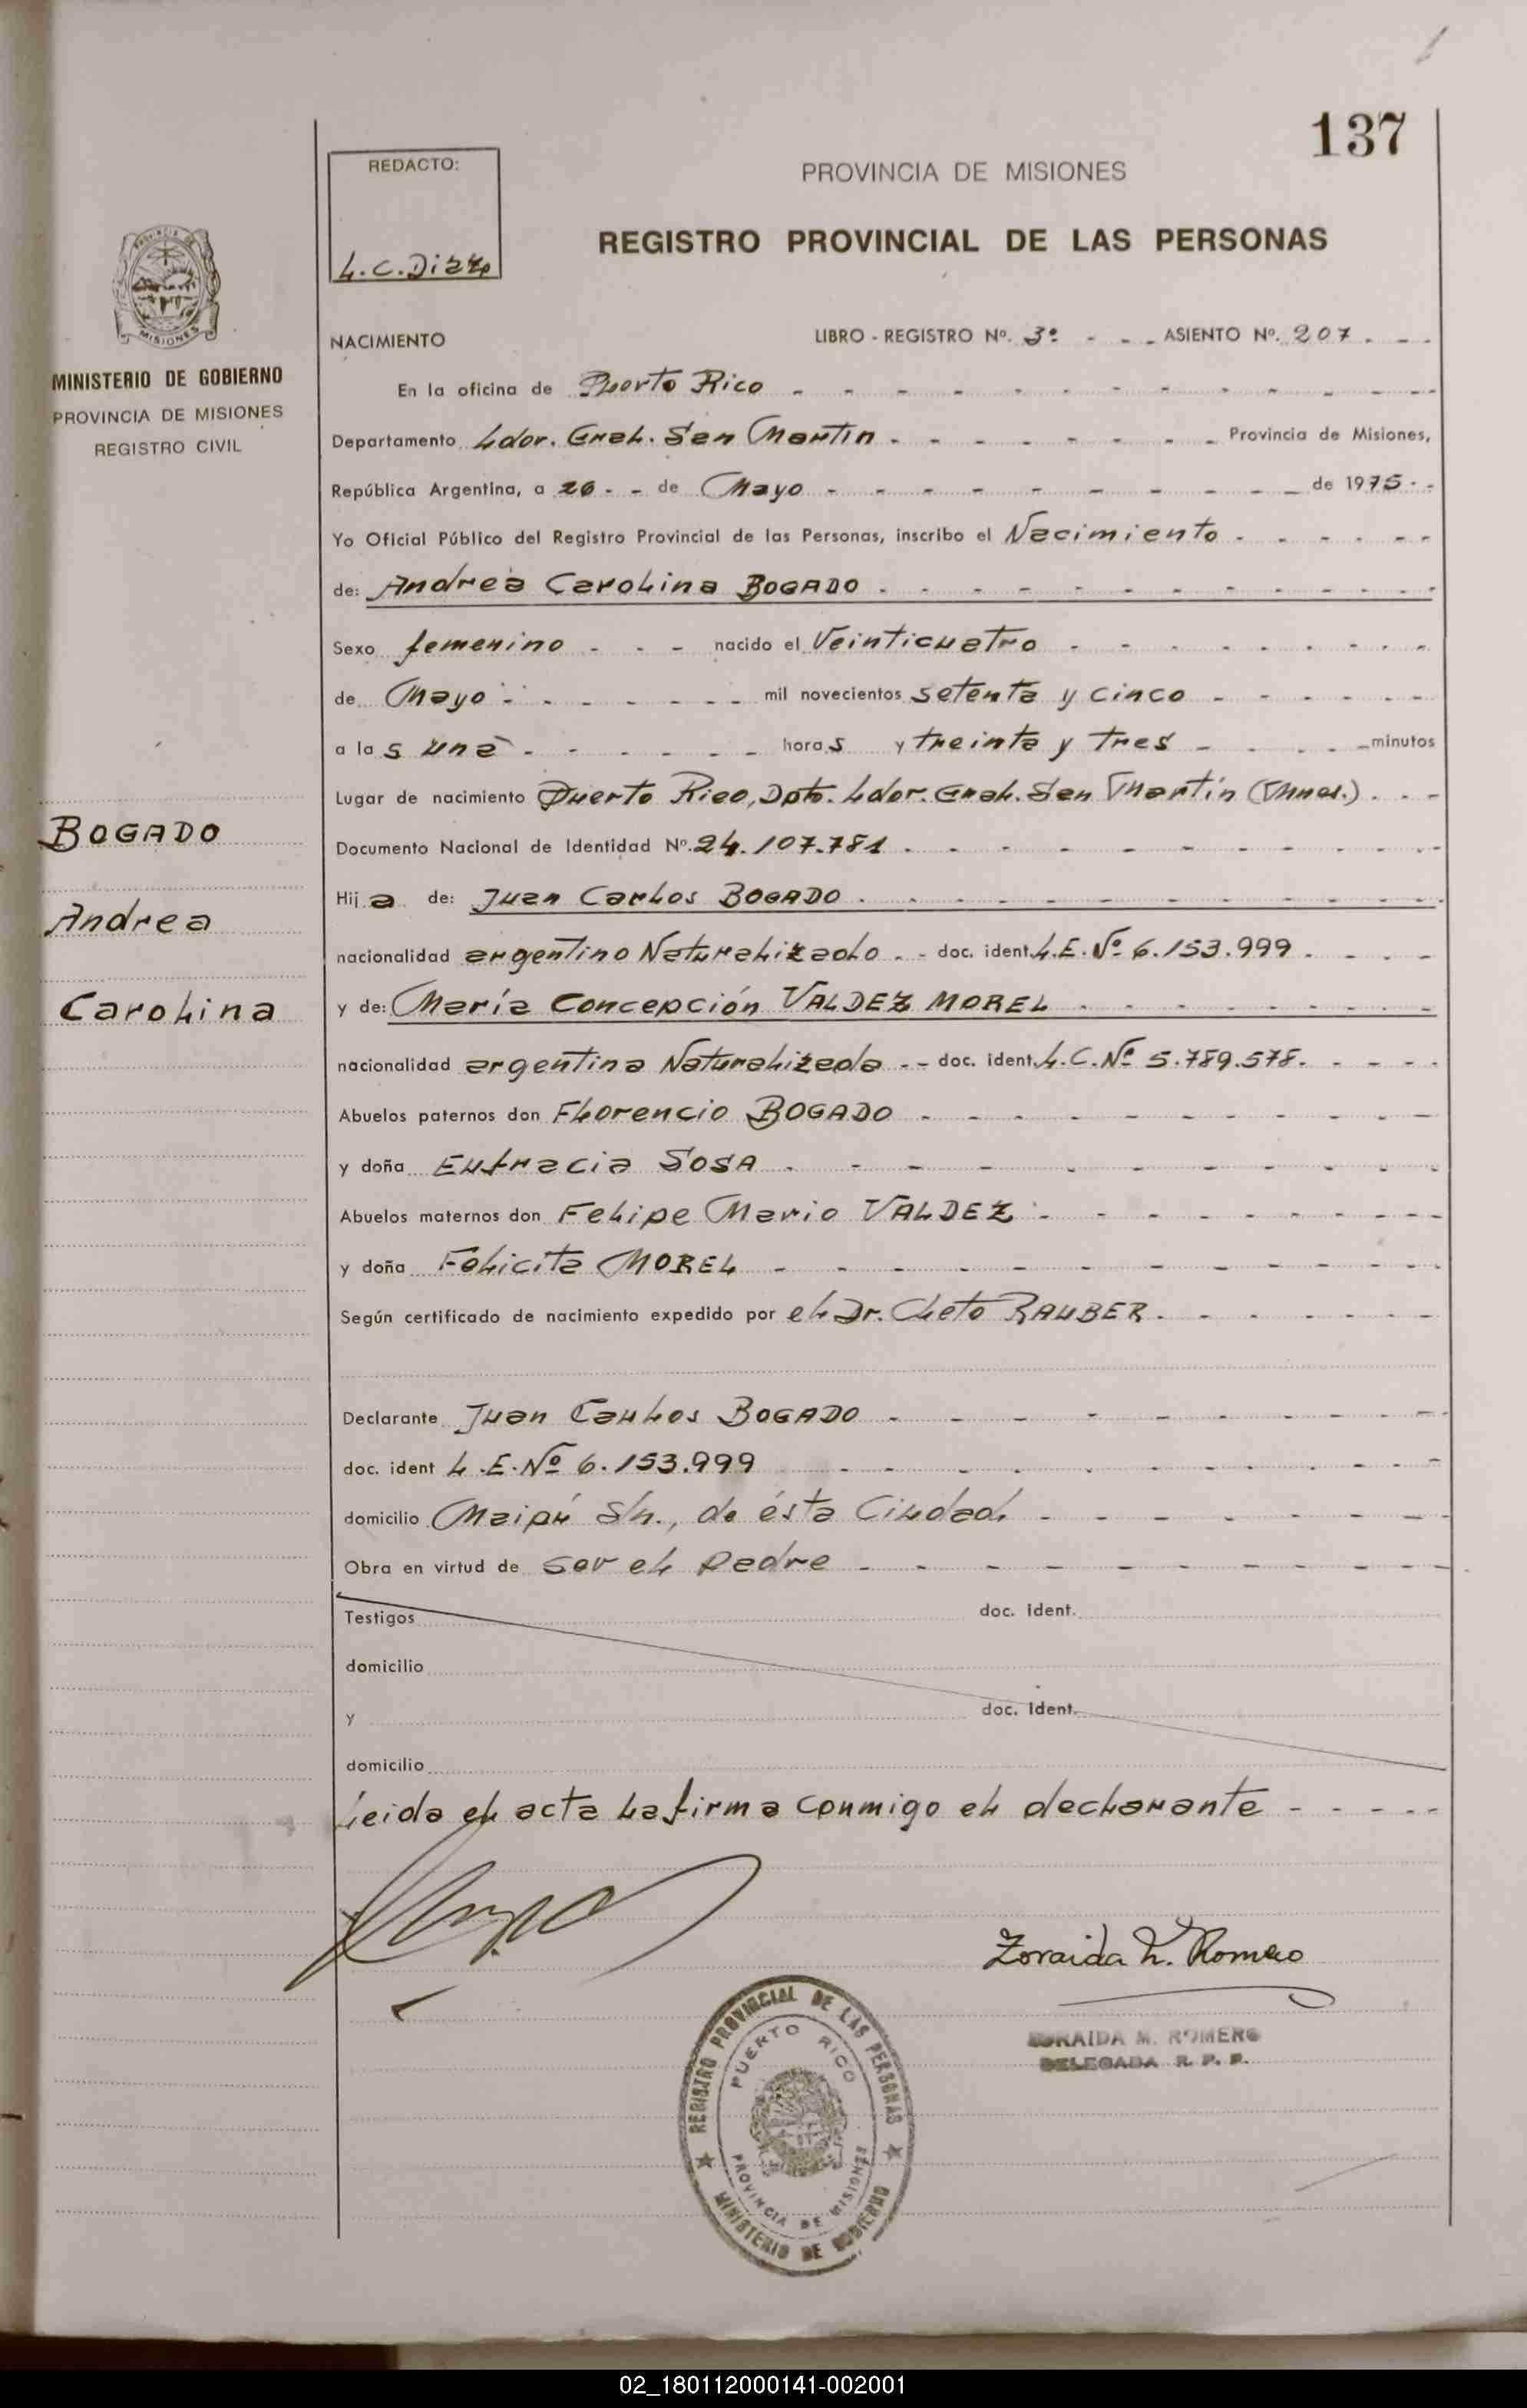 137
REDACTO:
L.C. Diaz
PROVINCIA DE MISIONES
REGISTRO PROVINCIAL DE LAS PERSONAS
PROVINCIA DE
MISIONES
MINISTERIO DE GOBIERNO
PROVINCIA DE MISIONES
REGISTRO CIVIL
NACIMIENTO LIBRO - REGISTRO Nº. 3º - - - ASIENTO Nº. 207. - -
En la oficina de Puerto Rico - - - - - - - - - - - -
Departamento Ldor. Gral. San Martin - - - - - - - Provincia de Misiones,
República Argentina, a 26 - - de Mayo - - - - - - - - - de 1975 - -
Yo Oficial Público del Registro Provincial de las Personas, inscribo el Nacimiento - - - - - -
de: Andrea Carolina BOGADO - - - - - - - - - - - -
Sexo femenino - - - nacido el Veinticuatro - - - - - - - - -
de Mayo - - - - - - - mil novecientos setenta y cinco - - - - - -
a las una - - - - - - horas y treinta y tres - - - - minutos
Lugar de nacimiento Puerto Rico, Dpto. Ldor. Gral. San Martín (Mnes.) - - -
Documento Nacional de Identidad Nº. 24.107.781 - - - - - - - - - -
Hija de: Juan Carlos BOGADO - - - - - - - - - - - -
nacionalidad argentino Naturalizado - - doc. ident. L.E. Nº 6.153.999 - - - -
y de: María Concepción VALDEZ MOREL - - - - - - - -
nacionalidad argentina Naturalizada - - doc. ident. L.C. Nº 5.789.578. - - - -
Abuelos paternos don Florencio BOGADO - - - - - - - - - -
y doña Eufracia SOSA - - - - - - - - - - -
Abuelos maternos don Felipe Mario VALDEZ - - - - - - - - -
y doña Felicita MOREL - - - - - - - - - - -
Según certificado de nacimiento expedido por el Dr. Cleto RAUBER - - - - - - -
Declarante Juan Carlos BOGADO - - - - - - - - -
doc. ident L.E. Nº 6.153.999 - - - - - - - - - - -
domicilio Maipú S/n., de ésta Ciudad - - - - - - - -
Obra en virtud de ser el padre - - - - - - - - - -
Testigos doc. ident.
domicilio
y doc. ident.
domicilio
Leida el acta la firma conmigo el declarante - - - - -
BOGADO
Andrea
Carolina
Zoraida M. Romero
ZORAIDA M. ROMERO
DELEGADA R. P. P.
REGISTRO PROVINCIAL DE LAS PERSONAS
PUERTO RICO
PROVINCIA DE MISIONES
MINISTERIO DE GOBIERNO
02_180112000141-002001